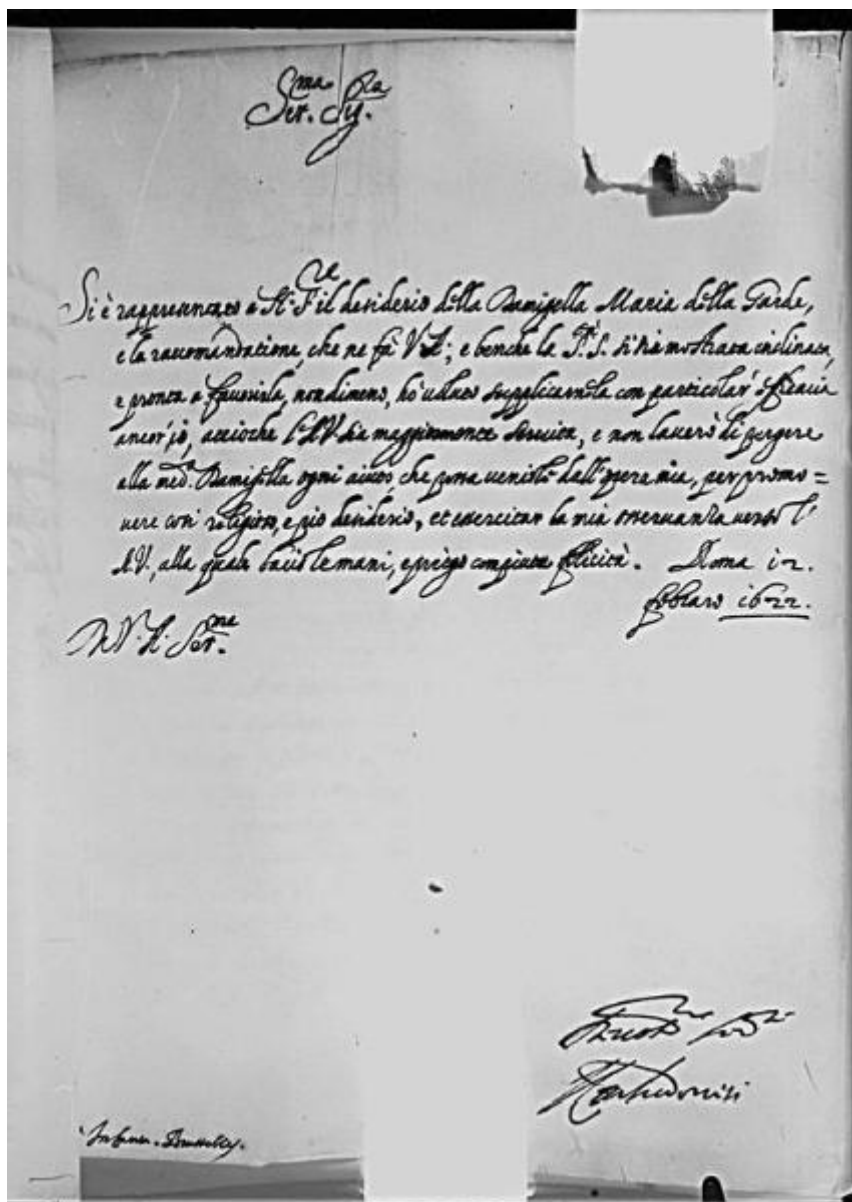 Ser.ma Sig.ra
Si è rappresentato a N. S.re il desiderio della Damigella Maria della Garde,
e la raccomandatione, che ne fà V.A; e benche la S.tà S. si sia mostrata inclinata,
e pronta a fauorirla, nondimeno, hò uoluto supplicarnela con particolar' efficacia
ancor' jo, accioche l'A.V. sia maggiormente seruita, e non lascerò di porgere
alla med.a Damigella ogni aiuto, che possa uenirle dall'opera mia, per promo=
uere così religioso, e pio desiderio, et esercitar la mia osseruanza uerso l'
A.V., alla quale bacio le mani, e prego compiuta felicità. Roma 12.
febraro 1622.
D. V. A. Ser.me
Infanta. Brusselles.